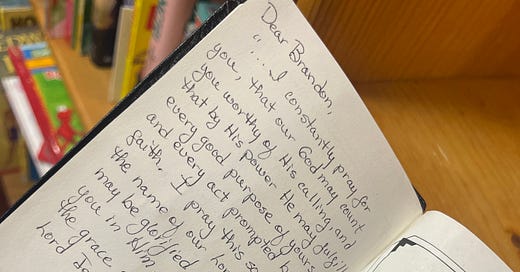 Dear Brandon,
"...I constantly pray for
you, that our God may count
you worthy of His calling, and
that by His power He may fulfill
every good purpose of yours
and every act prompted by
faith. I pray this so
the name of our Lor
may be glorified
you in Him
the grace
Lord Je